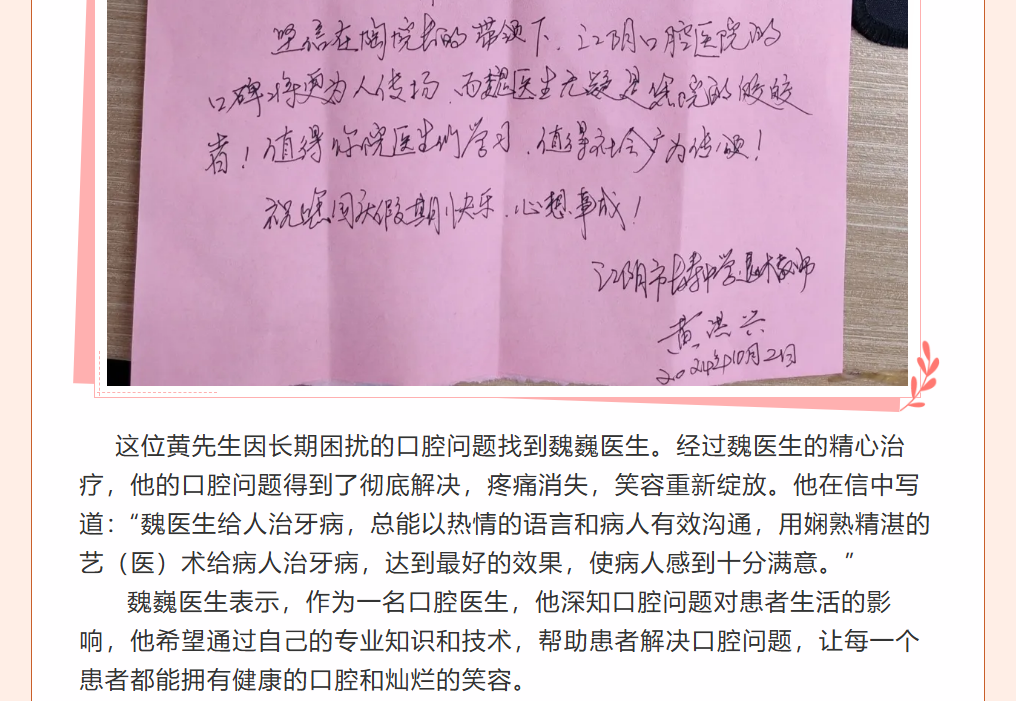 坚信在陶院长的带领下，江阴口腔医院的
口碑将更为人传扬，而魏医生无疑是您院的佼佼
者！值得你院医生们学习，值得社会广为传颂！
祝您国庆假期快乐，心想事成！
江阴市长寿中学退休教师
黄洪兴
2024年10月2日
这位黄先生因长期困扰的口腔问题找到魏巍医生。经过魏医生的精心治
疗，他的口腔问题得到了彻底解决，疼痛消失，笑容重新绽放。他在信中写
道：“魏医生给人治牙病，总能以热情的语言和病人有效沟通，用娴熟精湛的
艺（医）术给病人治牙病，达到最好的效果，使病人感到十分满意。”
魏巍医生表示，作为一名口腔医生，他深知口腔问题对患者生活的影
响，他希望通过自己的专业知识和技术，帮助患者解决口腔问题，让每一个
患者都能拥有健康的口腔和灿烂的笑容。